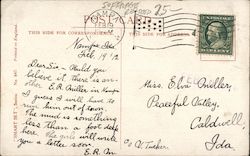 SUFFRAGE
25-
POST CARD
THIS SIDE FOR CORRESPONDENCE
THIS SIDE IS FOR ADDRESS
Nampa, Ida
Feb. 19 '12
Dear Sis - Would you
believe it there is an-
other E.R. Miller in Nampa
I guess I will have to
run him out of town.
The mud is something
less than a foot deep
here. The girls will write
you a letter soon.
E.R.M.
Miss. Elva Miller,
Peaceful Valley,
Caldwell
Ida.